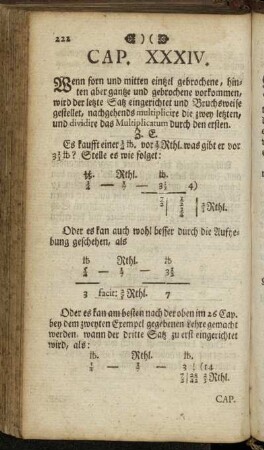 222
CAP. XXXIV.
Wenn forn und mitten eintzel gebrochene, hin-
ten aber gantze und gebrochene vorkommen,
wird der letzte Satz eingerichtet und Bruchsweise
gestellet, nachgehends multiplicire die zwey letzten,
und dividire das Multiplicatum durch den ersten.
Z. E.
Es kaufft einer lb. vor Rthl. was gibt er vor
lb? Stelle es wie folget:
Rthl. lb.
4)
Rthl.
Oder es kan auch wohl besser durch die Aufhe-
bung geschehen, als
lb Rthl. lb
3 facit: Rthl. 7
Oder es kan am besten nach der oben im 26 Cap.
bey dem zweyten Exempel gegebenen Lehre gemacht
werden, wann der dritte Satz zu erst eingerichtet
wird, als:
lb. Rthl. lb.
(14
Rthl.
CAP.